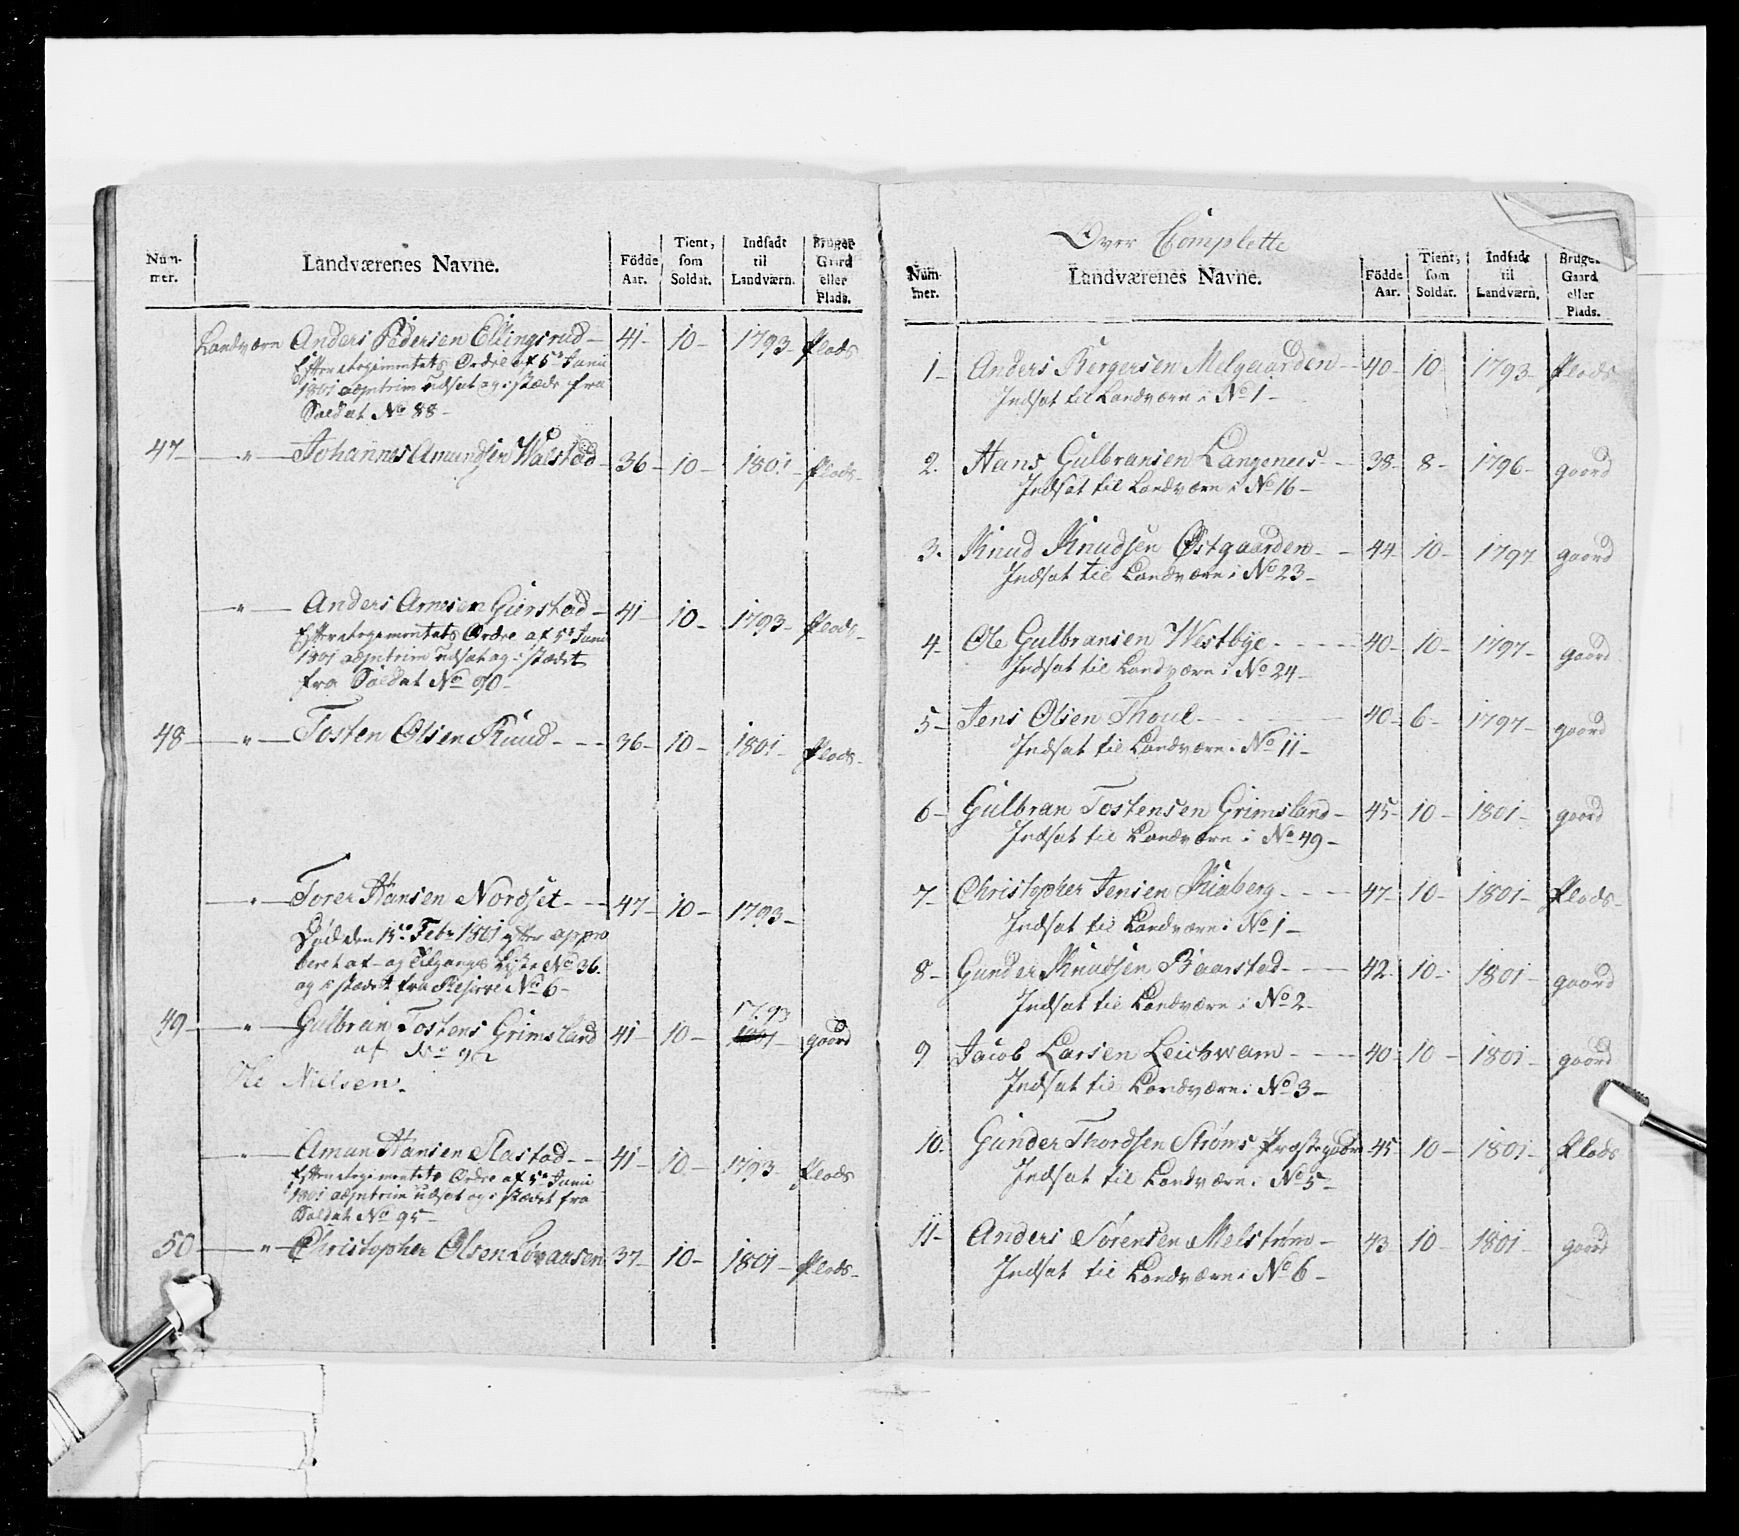 Num-
mer.
Landværenes Navne.
Födde
Aar.
Tient,
som
Soldat.
Indsadt
til
Landværn.
Bruger
Gaard
eller
Plads.
Landværn Anders Pedersen Ellingsrud – 41 – 10 – 1793 – Plads
Efter regimentets Ordre af 5te Junii
1801 udsat og i stæde fra
Soldat No 88 –
47 – " – Johannes Amundsen Walstad – 36 – 10 – 1801 – Plads –
– " – Anders Arnesen Gierstad – 41 – 10 – 1793 – Plads –
Efter regimentets Ordre af 5te Junii
1801 udsat og i stædet
fra Soldat No 90 –
48 – " – Tosten Olsen Ruud – – – 36 – 10 – 1801 – Plads –
– " – Torer Hansen Nordset – – 47 – 10 – 1793 –
Død den 15de Febr 1801 efter appro
beret af- og Tilgangs Liste No 36
og i stædet fra Reserve No 6 –
49 – " – Gulbran Tostens Grimsland 41 – 10 – 1793 gaard
af No
Ole Nielsen.
– " – Amun Hansen Slastad – – 41 – 10 – 1793 – Plads
Efter regimentets Ordre af 5te Junii
1801 udsat og i stædet fra
Soldat No 95 –
50 – " – Christopher Olsen Løvaasen 37 – 10 – 1801 – Plads –
Over Complette
Num-
mer.
Landværenes Navne.
Födde
Aar.
Tient,
som
Soldat.
Indsadt
til
Landværn.
Bruger
Gaard
eller
Plads.
1 – Anders Bergersen Melgaarden – 40 – 10 1793 – Plads
Indsat til Landværn i No 1 –
2. Hans Gulbransen Langenees – – 38 – 8 – 1796 – gaard
Indsat til Landværn i No 16 –
3. Knud Knudsen Østgaarden – – 44 – 10 – 1797 gaard
Indsat til Landværn i No 23 –
4 – Ole Gulbransen Westbye – – – – 40 – 10 – 1797 – gaard
Indsat til Landværn i No 24 –
5 – Jens Olsen Thoul – – – – 40 – 6 – 1797 – gaard
Indsat til Landværn i No 11 –
6 – Gulbran Tostensen Grimsland – 45 – 10 – 1801 – gaard
Indsat til Landværn i No 49 –
7 – Christopher Jensen Kinberg – – – 47 – 10 – 1801 – Plads –
Indsat til Landværn i No 1 –
8 – Gunder Knudsen Baarstad – – – 42 – 10 – 1801 – gaard
Indsat til Landværn i No 2 –
9 Jacob Larsen Leichwam – – – 40 – 10 – 1801 – gaard
Indsat til Landværn i No 3 –
10. Gunder Thordsen Strøms Præstegaard 45 – 10 – 1801 – Plads
Indsat til Landværn i No 5 –
11 – Anders Sørensen Melstrøm – 43 10 – 1801 – gaard
Indsat til Landværn i No 6 –